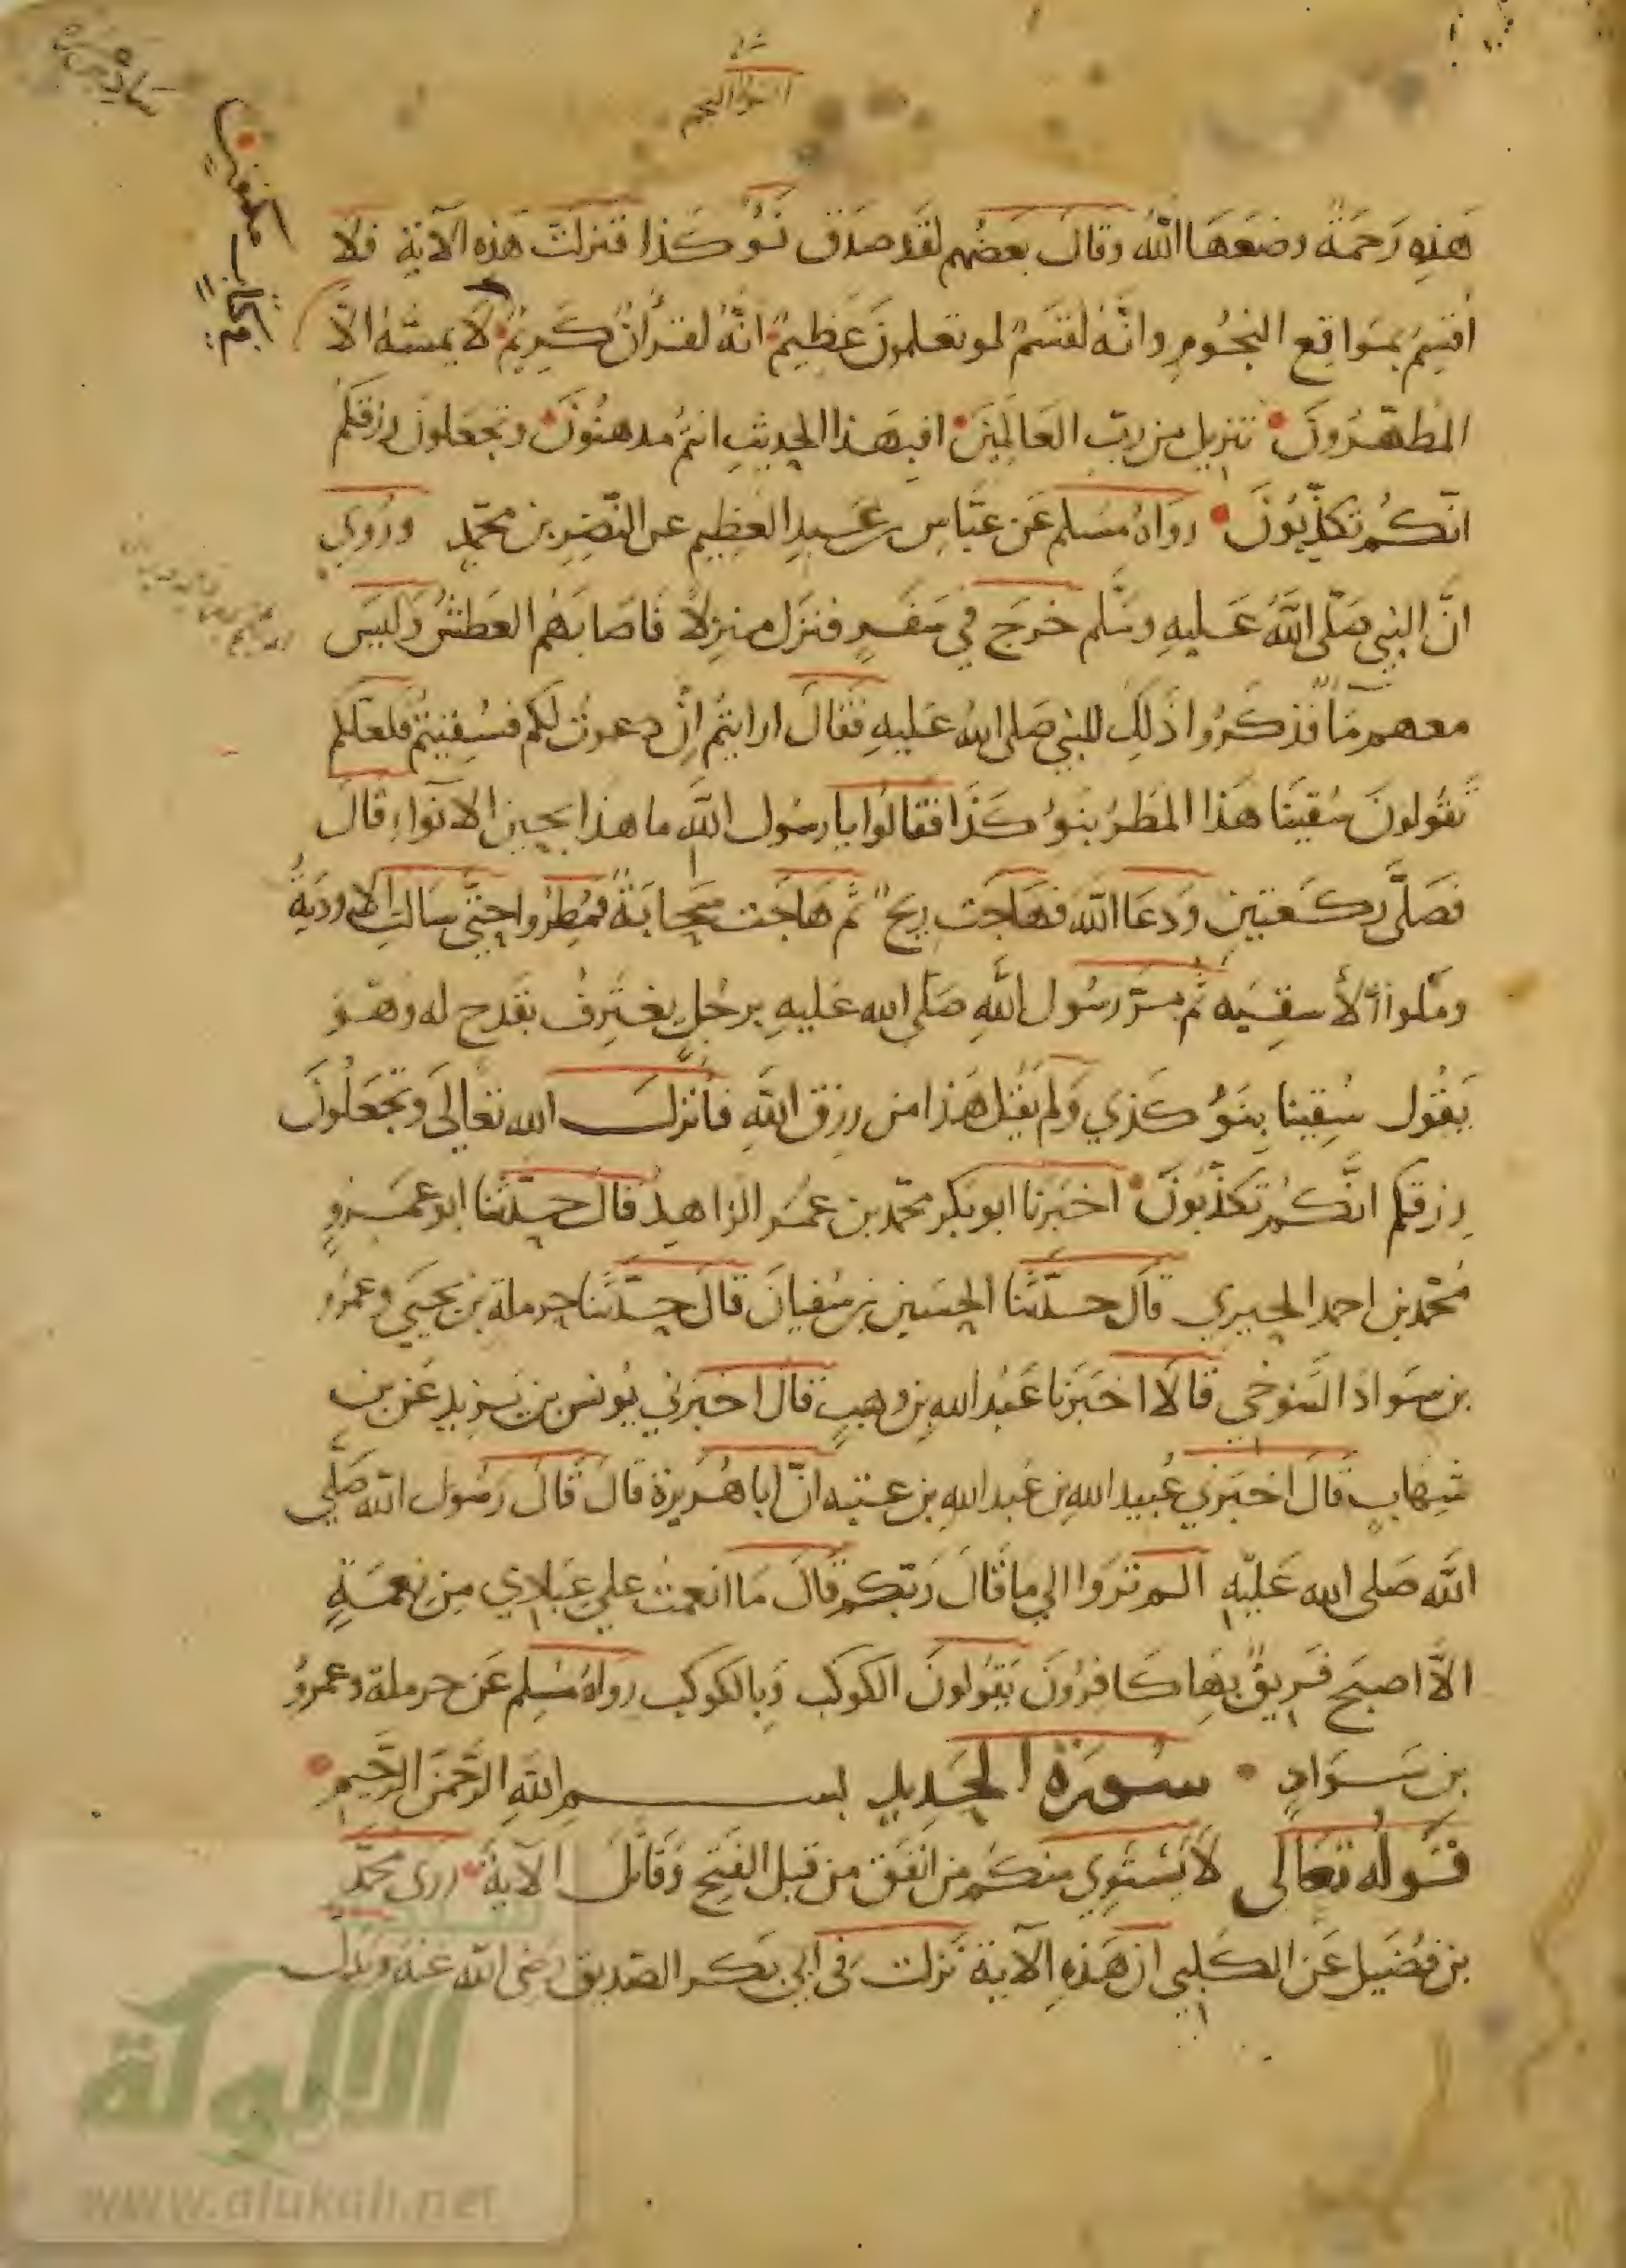 هَذِهِ رَحمَةٌ وضَعَهَا اللهُ وقالَ بعضُهم لقَد صَدَقَ نَوُّ كَذا فنزلَت هَذه الآية فلا
اُقسِمُ بمَواقِعِ النجُومِ وانَّهُ لقَسَمٌ لو تعلمونَ عَظِيمٌ انَّهُ لقرأنٌ كَرِيمٌ لا يمسّهُ الّا
في كتاب مكنون
المُطهّرُونَ تنزيل من ربّ العَالمِينَ افبهَذا الحديثِ انتُم مدهنُونَ وتجعَلونَ رزقكُم
انّكُم تكذّبُونَ روَاهُ مُسَلم عَن عبَّاسِ بن عَبدِ العَظِيم عن النَّضرِ بن محمّد ورُوي
انَّ النبي صَلّى اللَّهُ عَليهِ وسَلَّم خرَج في سَفَرٍ فنزَل منزِلاً فَاصَابَهُم العَطشُ وَليسَ
معهم مَا فذكَرُوا ذَلِكَ للنبيّ صَلى اللهُ عَليهِ فقَالَ ارايتُم اِن دعوتُ لكم فسُقِيتُم فلعَلكم
تقُولونَ سُقينَا هَذا المَطرُ بنوُ كَذَا فقالُوا يا رسُول اللَّهِ ما هذا بحين الانَواءِ قالَ
فصَلَّى ركعَتينِ ودعَا اللَّه فهَاجَت ريحٌ ثم هَاجَت سَحابَةٌ فمُطِرُوا حتّى سَالتِ الاَودَيةُ
وملوا الأسقيَه ثم مرّ رسُول اللَّهِ صَلّى الله عَليهِ برجُلٍ يغترِفُ بقَدحٍ له وهوَ
يَقُول سُقِينا بِنَوُ كَذي وَلم يَقُل هَذا من رزق اللهِ فأنزلَ الله تعَالَى وتجعَلُونَ
رزقكم انَّكُم تكذّبُونَ اخبَرنا ابو بكر محمّد بن عُمَر الزاهِد قال حدّثنا ابو عَمرٍو
مُحمّد بن احمد الحِيري قال حدّثنا الحسَين بن سُفيان قال حدّثنا حرملة بن يحيَى وعَمرُو
بن سَواد السَّنوخي قالَا اخبَرنا عَبْد الله بن وهبٍ قال اخبَرني يُونس بن يَزيد عَن بن
شِهَابٍ قالَ اخبَرني عُبيد اللهِ بن عَبد اللهِ بن عتبه انّ ابا هُرَيرة قالَ قالَ رَسُول اللهِ صَلَّى
اللَّه صَلى الله عَليهِ الم ترَوا الي ما قالَ رَبّكم قالَ مَا انعمتُ علي عبَادي مِن نِعمَةٍ
الاَّ اصبَح فريقٌ بهَا كَافِرُونَ يَقولونَ الكوكَب وَبالكوكَب رواهُ مُسْلِم عَن حرملة وعمرُو
بن سَوَادٍ سُورَة الحَدِيدِ بسم اللهِ الرَّحمَن الرَّحيم
قَولُه تعَالَى لَا يَستَوِي منكُم من انفَق من قبل الفَتح وَقَاتلَ الآية روى محمّد
بن فُضَيل عَن الكَلبي ان هَذِهِ الآية نزلت في ابي بَكر الصّديق رضى اللّه عَنهُ ويَدل
الألوكة
www.alukah.net